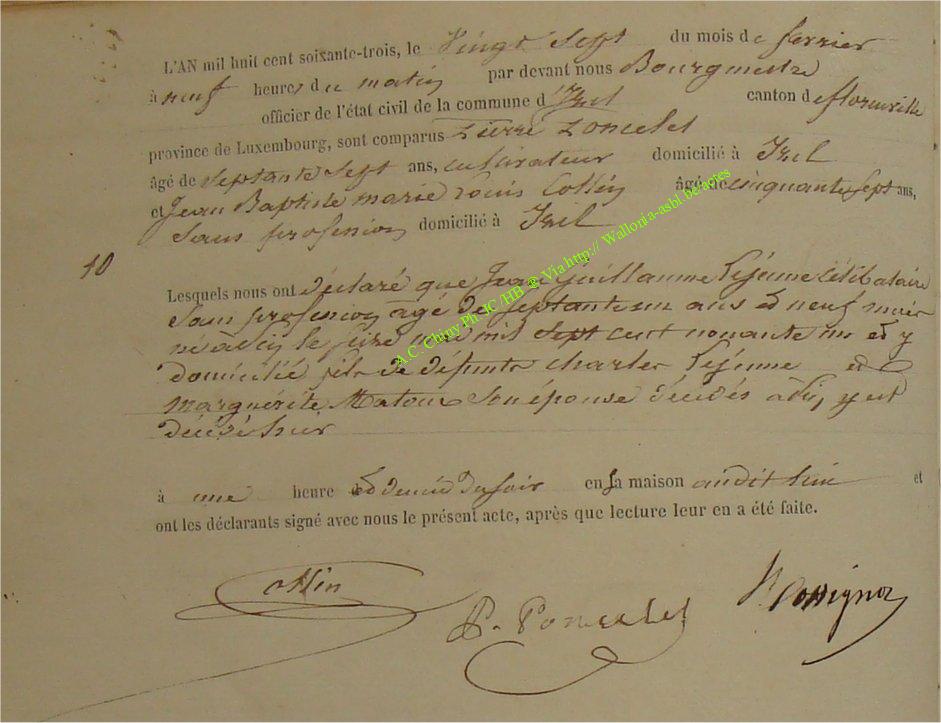 L'AN mil huit cent soixante-trois, le Vingt Sept du mois de fevrier
à neuf heures du matin par devant nous Bourgmestre
officier de l'état civil de la commune d'Izel canton de florenville
province de Luxembourg, sont comparus Pierre Poncelet
âgé de Septante Sept ans, cultivateur domicilié à Izel
et Jean Baptiste marie Louis Collin âgé de cinquante sept ans,
Sans profession domicilié à Izel
10
Lesquels nous ont déclaré que Jean Guillaume Lejeune Célibataire
Sans profession âgé de Septante un ans et neuf mois
né à le mil Sept cent nonante un et y
domicilié fils de défunts charles Lejeune et
marguérite Son épouse décédés y est
décédé hier
à une heure et demie du soir en sa maison audit lieu et
ont les déclarants signé avec nous le présent acte, après que lecture leur en a été faite.
Collin
P. Poncelet
Rossignon
A.C. Chiny Ph JC / HB @ Via http:// Wallonia-asbl.be/actes